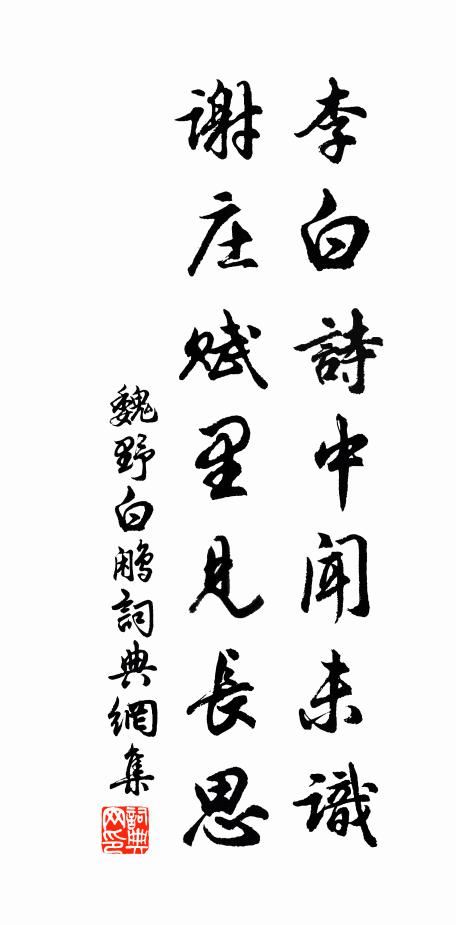 李白詩中聞未識
謝庄賦里見長思
魏野白鷴詞典網集
詞典网印